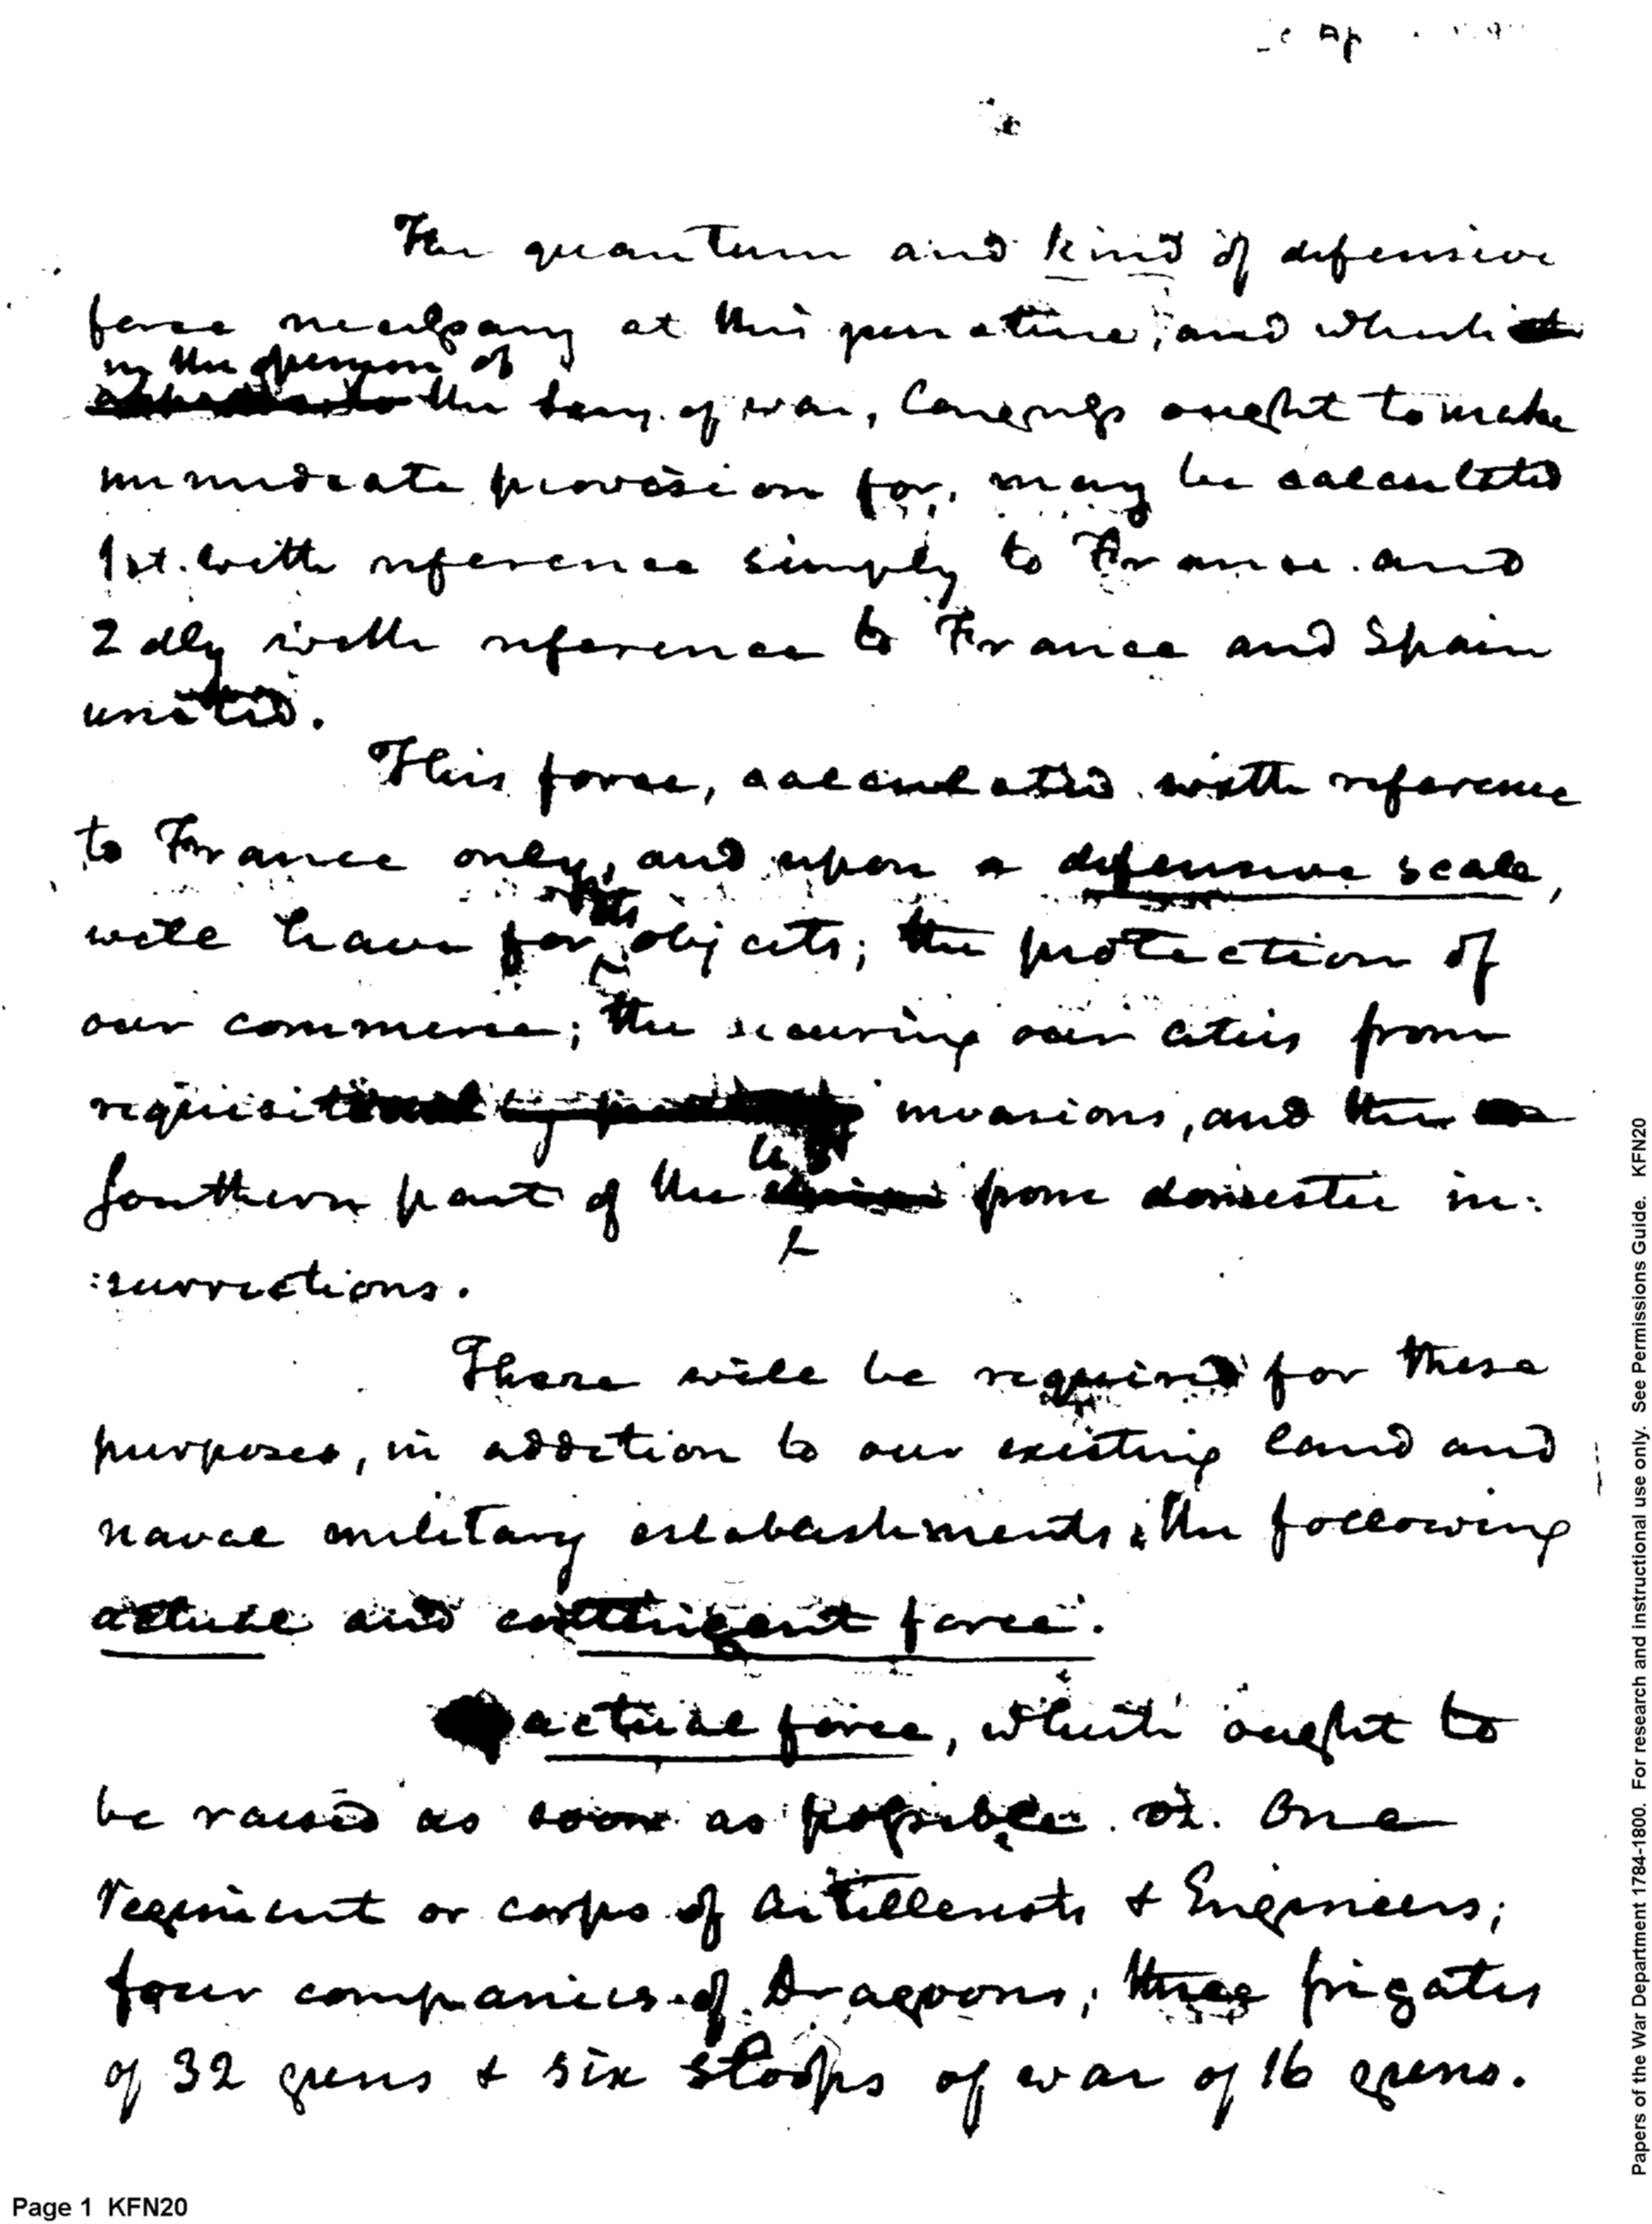 Ap
The quantum and kind of defensive
force necessary at this juncture, and which
in the opinion of
the Secy. of war, Congress ought to make
immediate provision for, may be calculated
1st. with reference simply to France. and
2dly with reference to France and Spain
united.
This force, calculated with reference
to France only, and upon a defensive scale,
will have for objects; the protection of
our commerce; the securing our cities from
requisit invasions, and the
Southern part of the from domestic in:
:surrections.
There will be required for these
purposes, in addition to our existing land and
naval military establishments, the following
actual and contingent force.
actual force, which ought to
be raised as soon as possible. viz. One
regiment or corps of Artillerists & Engineers;
four companies of Dragoons; three frigates
of 32 guns & six sloops of war of 16 guns.
Page 1 KFN20
Papers of the War Department 1784-1800. For research and instructional use only. See Permissions Guide. KFN20